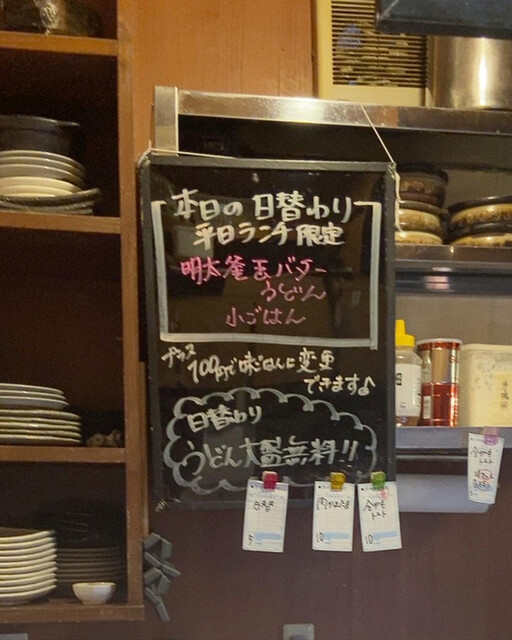 本日の日替わり
平日ランチ限定
明太釜玉バター
うどん
小ごはん
プラス
100円で味ごはんに変更
できます♪
日替わり
うどん大盛無料!!
日替
5
10
10